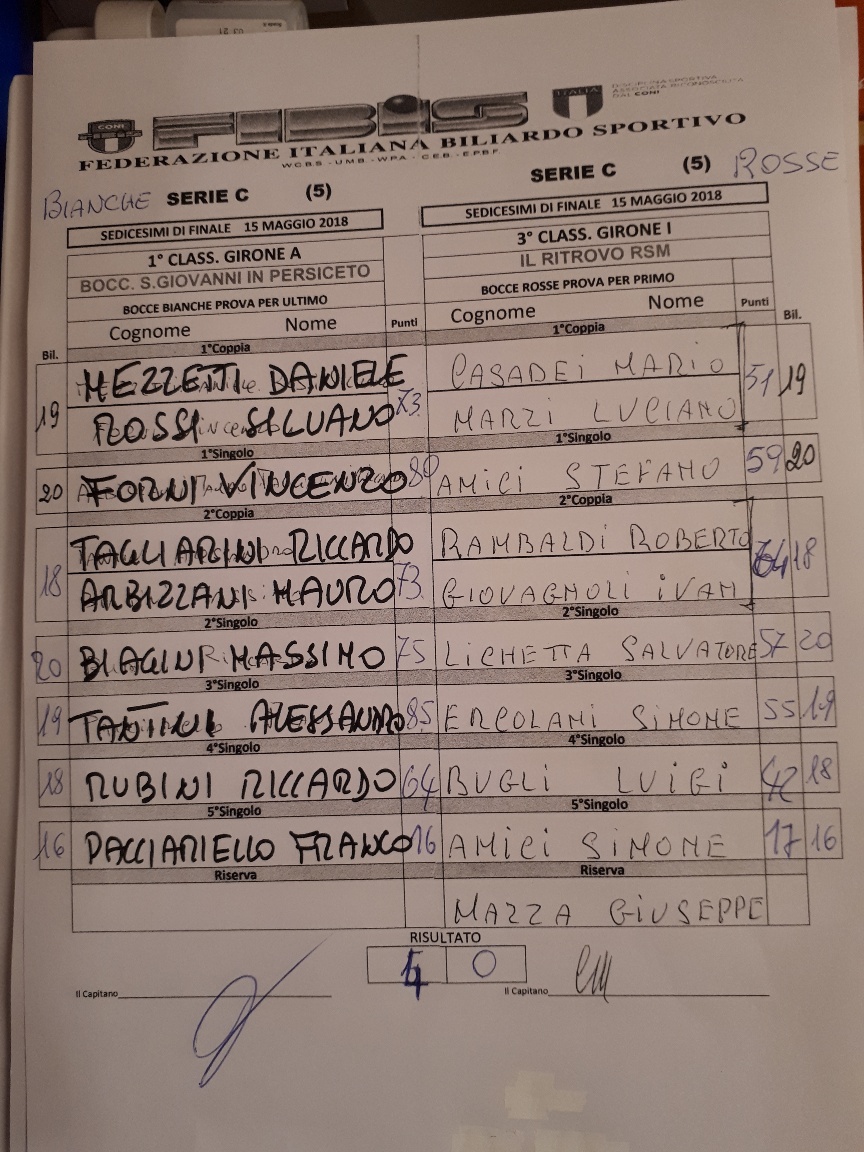 CONI
FIBIS
ITALIA
DISCIPLINA SPORTIVA
ASSOCIATA RICONOSCIUTA
DAL CONI
FEDERAZIONE ITALIANA BILIARDO SPORTIVO
WCBS - UMB - WPA - CEB - EPBF
BIANCHE SERIE C (5) SERIE C (5) ROSSE
SEDICESIMI DI FINALE 15 MAGGIO 2018 SEDICESIMI DI FINALE 15 MAGGIO 2018
1° CLASS. GIRONE A 3° CLASS. GIRONE I
BOCC. S.GIOVANNI IN PERSICETO IL RITROVO RSM
BOCCE BIANCHE PROVA PER ULTIMO BOCCE ROSSE PROVA PER PRIMO
Cognome Nome Punti Cognome Nome Punti
Bil. 1°Coppia 1°Coppia Bil.
MEZZETTI DANIELE CASADEI MARIO
19 ROSSI SILVANO 73 MARZI LUCIANO 51 19
1°Singolo 1°Singolo
20 FORNI VINCENZO 80 AMICI STEFANO 59 20
2°Coppia 2°Coppia
TAGLIARINI RICCARDO RAMBALDI ROBERTO
18 ARBIZZANI MAURO 73 GIOVAGNOLI IVAN 64 18
2°Singolo 2°Singolo
20 BIAGINI MASSIMO 75 LICHETTA SALVATORE 57 20
3°Singolo 3°Singolo
19 TANTINI ALESSANDRO 85 ERCOLANI SIMONE 55 19
4°Singolo 4°Singolo
18 RUBINI RICCARDO 64 BUGLI LUIGI 42 18
5°Singolo 5°Singolo
16 PACCIARIELLO FRANCO 16 AMICI SIMONE 17 16
Riserva Riserva
MAZZA GIUSEPPE
RISULTATO
4 0
Il Capitano Il Capitano